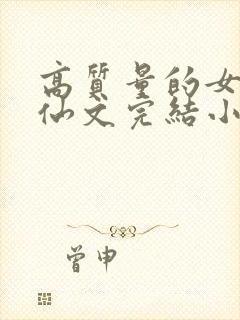 高質量的女
仙文完結小
曾申